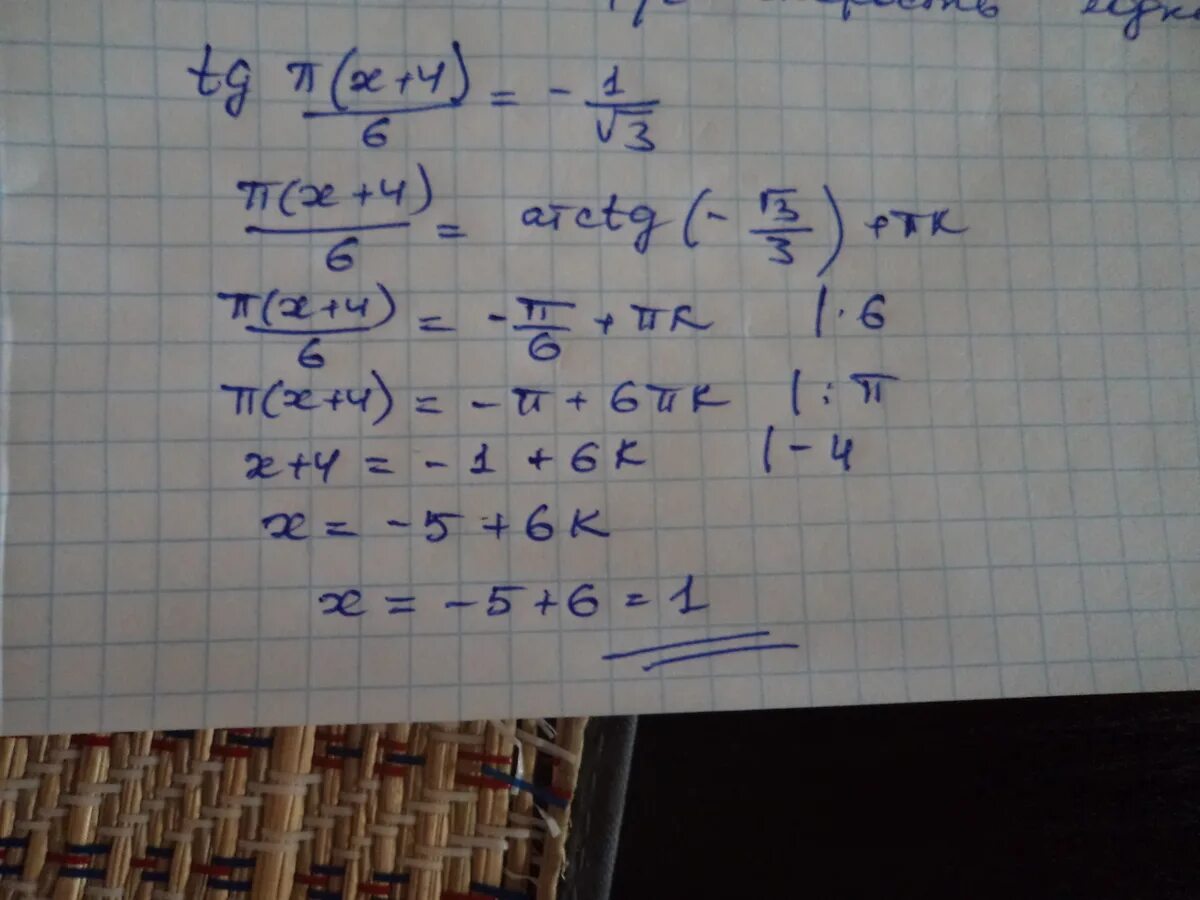 tg π(x+4)/6 = - 1/√3
π(x+4)/6 = arctg(- √3/3) + πk
π(x+4)/6 = - π/6 + πk |·6
π(x+4) = - π + 6πk |: π
x+4 = - 1 + 6k |- 4
x = - 5 + 6k
x = - 5 + 6 = 1